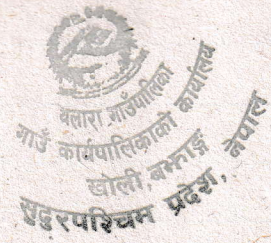 थलारा गाउँपालिका
गाउँ कार्यपालिकाको कार्यालय
खोली, बझाङ
सुदुरपश्चिम प्रदेश, नेपाल